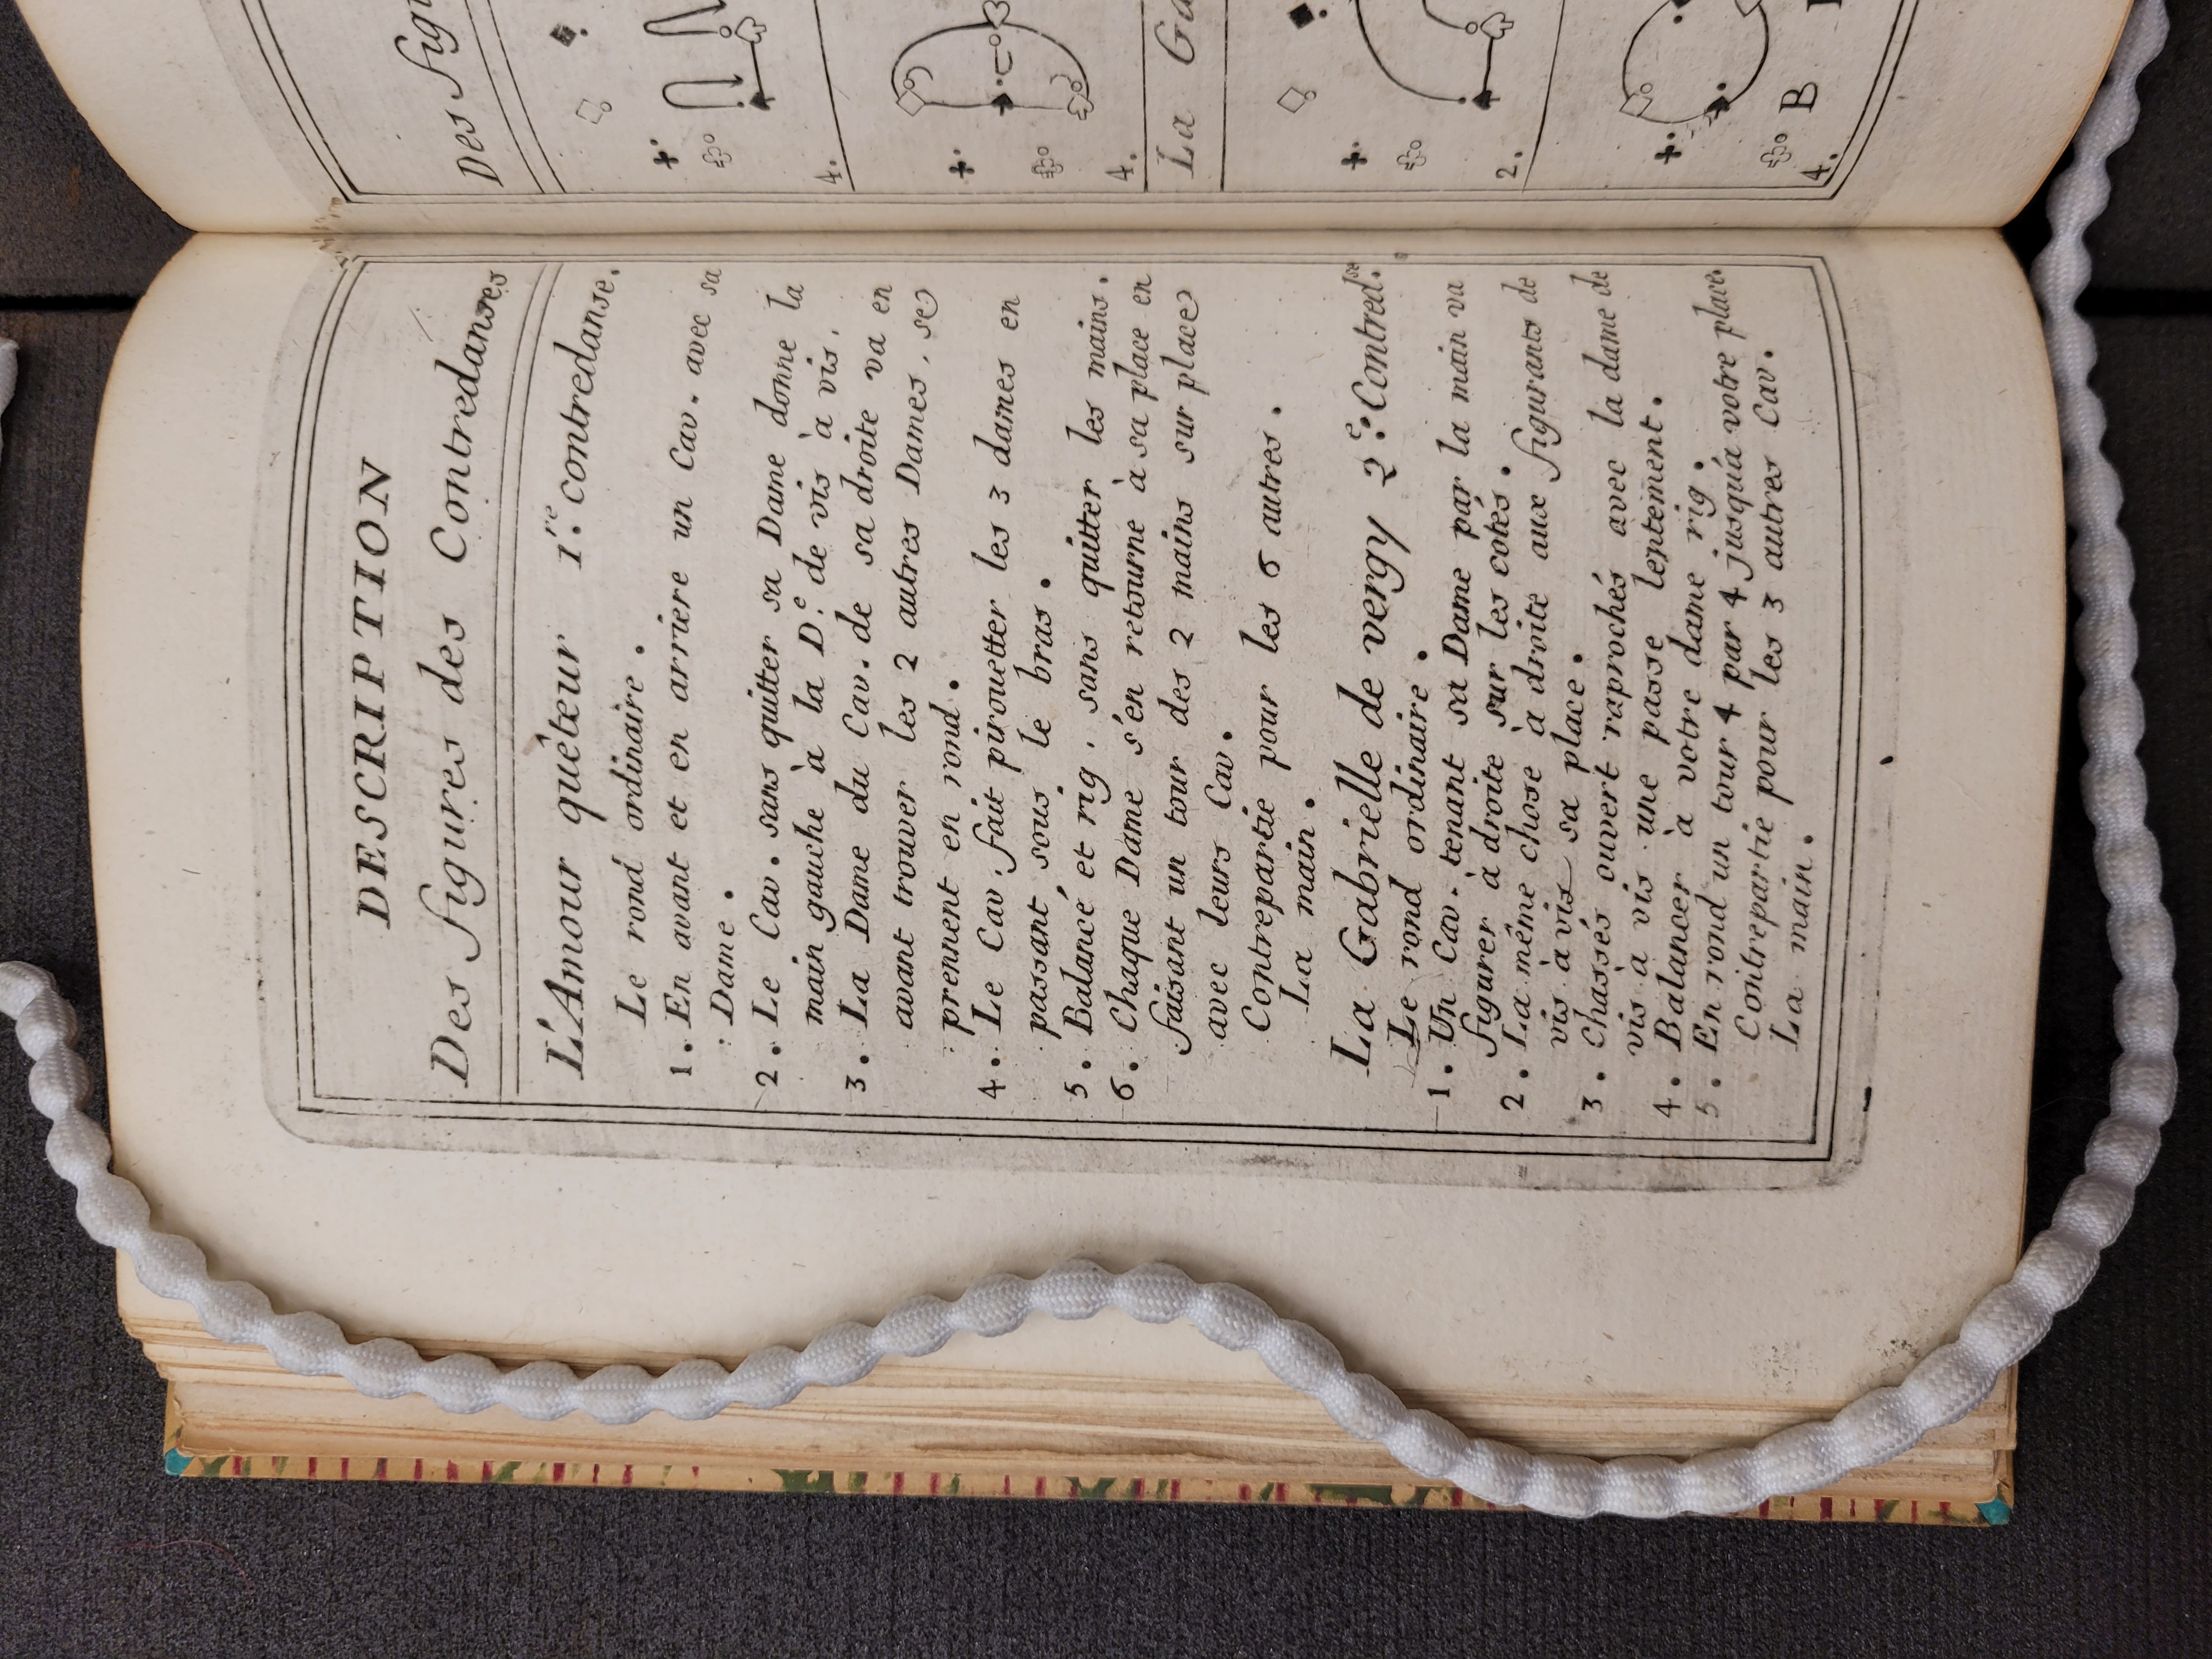 DESCRIPTION
Des figures des Contredanses
L'Amour quêteur 1.re contredanse.
Le rond ordinaire.
1. En avant et en arriere un Cav. avec sa
Dame.
2. Le Cav. sans quitter sa Dame donne la
main gauche à la D.e de vis à vis.
3. La Dame du Cav. de sa droite va en
avant trouver les 2 autres Dames, se
prennent en rond.
4. Le Cav. fait pirouetter les 3 dames en
passant sous le bras.
5. Balancé et rig. sans quitter les mains.
6. Chaque Dame s'en retourne à sa place en
faisant un tour des 2 mains sur place
avec leurs Cav.
Contrepartie pour les 6 autres.
La main.
La Gabrielle de vergy 2.e Contred.se
Le rond ordinaire.
1. Un Cav. tenant sa Dame par la main va
figurer à droite sur les cotés.
2. La même chose à droite aux figurants de
vis à vis sa place.
3. Chassés ouvert raprochés avec la dame de
vis à vis une passe lentement.
4. Balancer à votre dame rig.
5. En rond un tour 4 par 4 jusqu'à votre place.
Contrepartie pour les 3 autres Cav.
La main.
Des fig
4.
4.
La Ga
2.
B
4.